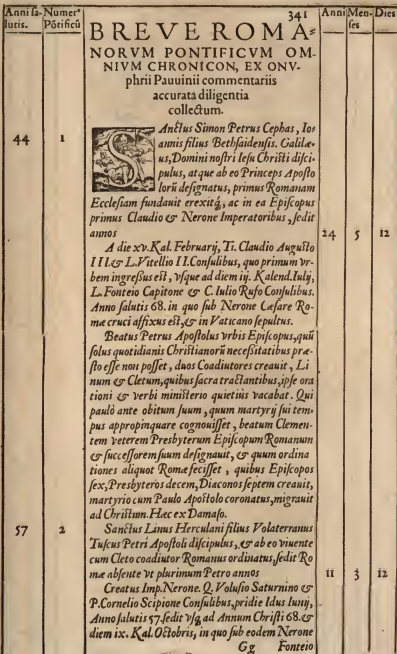 341
Anni sa-
lutis.
Numer'
Pōtificū
Anni
Men-
ses
Dies
BREVE ROMA=
NORVM PONTIFICVM OM-
NIVM CHRONICON, EX ONV-
phrii Pauuinii commentariis
accurata diligentia
collectum.
44
1
SAnctus Simon Petrus Cephas, Io-
annis filius Bethsaidensis. Galilæ-
us, Domini nostri Iesu Christi disci-
pulus, atque ab eo Princeps Aposto
lorū designatus, primus Romanam
Ecclesiam fundauit erexitq́;, ac in ea Episcopus
primus Claudio & Nerone Imperatoribus, sedit
annos
24
5
12
A die xv. Kal. Februarij, Ti. Claudio Augusto
III. & L. Vitellio II. Consulibus, quo primum vr-
bem ingressus est, vsque ad diem iij. Kalend. Iulij,
L. Fonteio Capitone & C. Iulio Rufo Consulibus.
Anno salutis 68. in quo sub Nerone Cæsare Ro-
mæ cruci affixus est, & in Vaticano sepultus.
Beatus Petrus Apostolus vrbis Episcopus, quū
solus quotidianis Christianorū necessitatibus præ-
sto esse non posset, duos Coadiutores creauit, Li
num & Cletum, quibus sacra tractantibus, ipse ora
tioni & verbi ministerio quietius vacabat. Qui
paulò ante obitum suum, quum martyrij sui tem-
pus appropinquare cognouisset, beatum Clemen-
tem veterem Presbyterum Episcopum Romanum
& successorem suum designauit, & quum ordina
tiones aliquot Romæ fecisset, quibus Episcopos
sex, Presbyteros decem, Diaconos septem creauit,
martyrio cum Paulo Apostolo coronatus, migrauit
ad Christum. Hæc ex Damaso.
57
2
Sanctus Linus Herculani filius Volaterranus
Tuscus Petri Apostoli discipulus, & ab eo viuente
cum Cleto coadiutor Romanus ordinatus, sedit Ro
mæ absente vt plurimum Petro annos
11
3
12
Creatus Imp. Nerone. Q. Volusio Saturnino &
P. Cornelio Scipione Consulibus, pridie Idus Iunij,
Anno salutis 57. sedit vsq; ad Annum Christi 68. &
diem ix. Kal. Octobris, in quo sub eodem Nerone
Gg
Fonteio